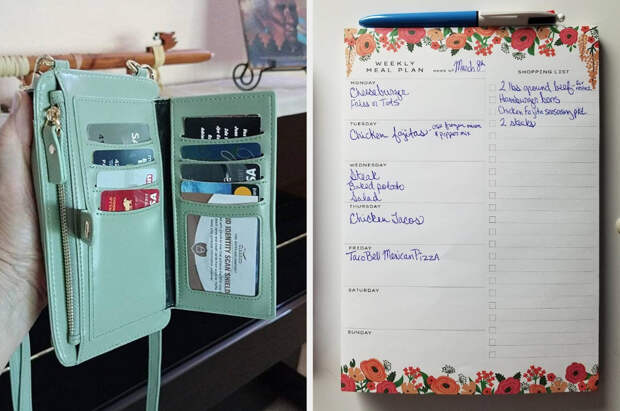 VISA
ID IDENTITY SCAN SHIELD
WEEKLY
MEAL PLAN
WEEK OF March 8th
SHOPPING LIST
MONDAY
Cheeseburger
Fries n Tots
TUESDAY
Chicken fajitas - use frozen onion
& pepper mix
WEDNESDAY
Steak
Baked potato
Salad
THURSDAY
Chicken Tacos
FRIDAY
Taco Bell Mexican Pizza
SATURDAY
SUNDAY
2 lbs ground beef for
Hamburger buns
Chicken Fajita seasoning pkt
2 steaks